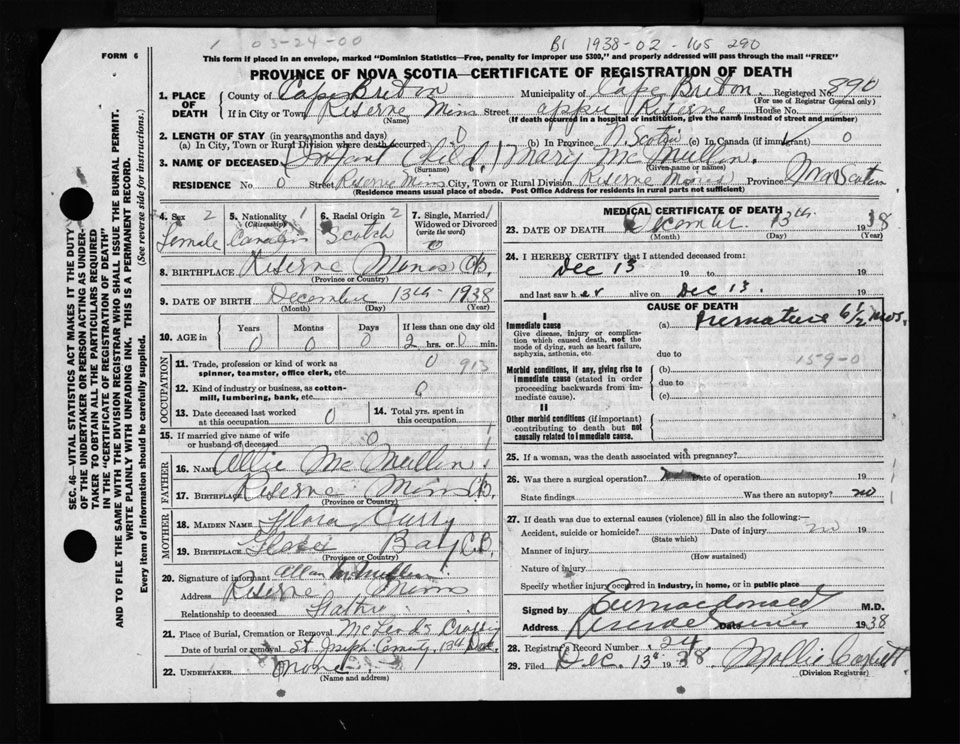 03-24-00
1938-02-165 290
FORM 6
This form if placed in an envelope, marked "Dominion Statistics—Free, penalty for improper use $300," and properly addressed will pass through the mail "FREE"
PROVINCE OF NOVA SCOTIA—CERTIFICATE OF REGISTRATION OF DEATH
1. PLACE OF DEATH
County of Cape Breton Municipality of Cape Breton. Registered No. 890
(For use of Registrar General only)
If in City or Town Reserve Mines Street Reserve House No.
(Name) (If death occurred in a hospital or institution, give the name instead of street and number)
2. LENGTH OF STAY (in years, months and days)
(a) In City, Town or Rural Division where death occurred 0 (b) In Province N. Scotia (c) In Canada (if immigrant) 0
3. NAME OF DECEASED (Infant Child.) Mary McMullin.
(Surname) (Given name or names)
RESIDENCE No 0 Street Reserve Mines City, Town or Rural Division Reserve Mines Province Nova Scotia
(Residence means usual place of abode. Post Office Address for residents in rural parts not sufficient)
SEC. 46—VITAL STATISTICS ACT MAKES IT THE DUTY OF THE UNDERTAKER OR PERSON ACTING AS UNDERTAKER TO OBTAIN ALL THE PARTICULARS REQUIRED IN THE "CERTIFICATE OF REGISTRATION OF DEATH"
AND TO FILE THE SAME WITH THE DIVISION REGISTRAR WHO SHALL ISSUE THE BURIAL PERMIT.
WRITE PLAINLY WITH UNFADING INK. THIS IS A PERMANENT RECORD.
Every item of information should be carefully supplied. (See reverse side for instructions.)
4. Sex 2
Female
5. Nationality 1
(Citizenship)
Canadian
6. Racial Origin 2
Scotch
7. Single, Married, Widowed or Divorced
(write the word)
0
8. BIRTHPLACE Reserve Mines CB.
(Province or Country)
9. DATE OF BIRTH December 13th 1938
(Month) (Day) (Year)
10. AGE in
Years Months Days If less than one day
0 0 0 2 hrs. or 0 min.
OCCUPATION
11. Trade, profession or kind of work as spinner, teamster, office clerk, etc. 0 913
12. Kind of industry or business, as cotton-mill, lumbering, bank, etc.
13. Date deceased last worked at this occupation 0
14. Total yrs. spent in this occupation
15. If married give name of wife or husband of deceased 0
FATHER
16. NAME Allie McMullin.
17. BIRTHPLACE Reserve Mines CB.
(Province or Country)
MOTHER
18. MAIDEN NAME Flora Curry
19. BIRTHPLACE Glace Bay C.B.
(Province or Country)
20. Signature of informant Allan McMullin
Address Reserve Mines
Relationship to deceased Father
21. Place of Burial, Cremation or Removal McLeods Crossing
Date of burial or removal St. Joseph 13th Dec.
22. UNDERTAKER none
(Name and address)
MEDICAL CERTIFICATE OF DEATH
23. DATE OF DEATH December 13th 1938
(Month) (Day) (Year)
24. I HEREBY CERTIFY that I attended deceased from:
Dec 13 19 to 19
and last saw her alive on Dec 13. 19
CAUSE OF DEATH
I
Immediate cause
Give disease, injury or complication which caused death, not the mode of dying, such as heart failure, asphyxia, asthenia, etc.
(a) Premature 6½ mos.
due to
159-0
Morbid conditions, if any, giving rise to immediate cause (stated in order proceeding backwards from immediate cause)
(b)
due to
(c)
II
Other morbid conditions (if important) contributing to death but not causally related to immediate cause.
25. If a woman, was the death associated with pregnancy?
26. Was there a surgical operation? Date of operation 19
State findings Was there an autopsy? no
27. If death was due to external causes (violence) fill in also the following:—
Accident, suicide or homicide? Date of injury no 19
(State which)
Manner of injury
(How sustained)
Nature of injury
Specify whether injury occurred in industry, in home, or in public place
Signed by Macdonald M.D.
Address Reserve Mines Date 1938
28. Registrar's Record Number 24
29. Filed Dec. 13th 1938 Mollie
(Division Registrar)